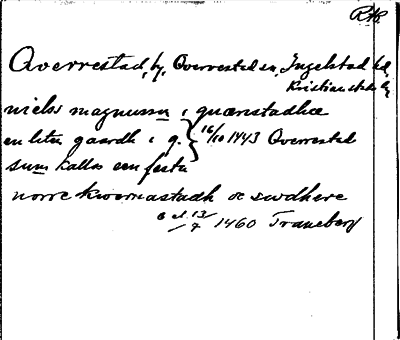 Rtk.
Qverrestad, by, Qverrestad sn, Ingelstad hd,
Kristianstads l.
nielss magnusson i quærnstadhæ
en liten gaardh i q. } 16/10 1443 Qverrestad
sum kallas een festa
norre kwernastadh oc swdhere
6 el. 13/7 1460 Traneberg